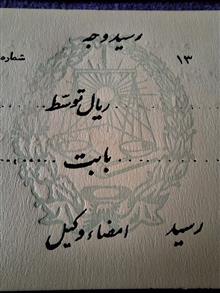 رسید وجه
شماره ۱۳
ریال توسّط
بابت
رسید امضاء وکیل